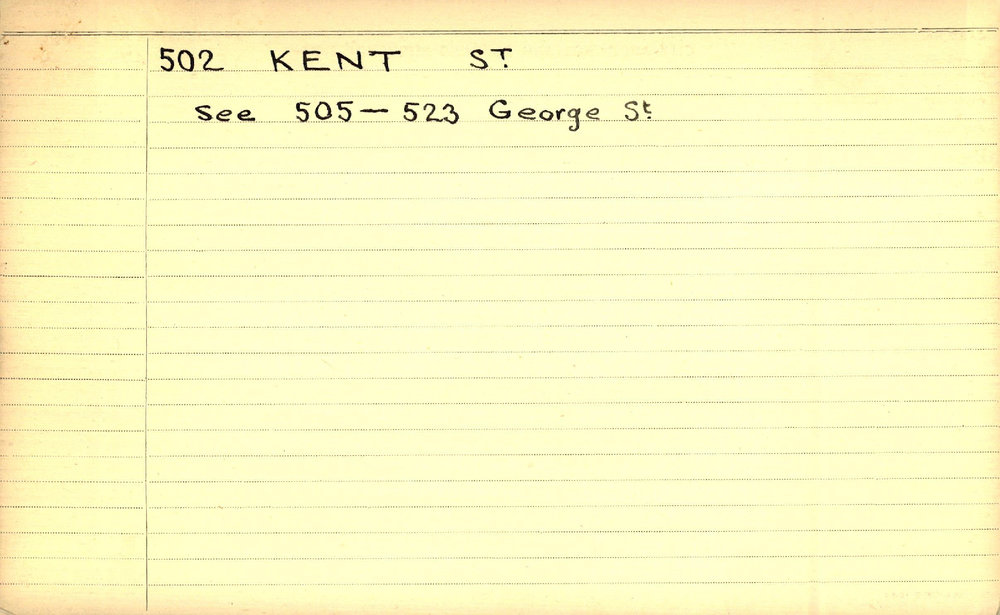 502 KENT ST.
See 505 — 523 George St.